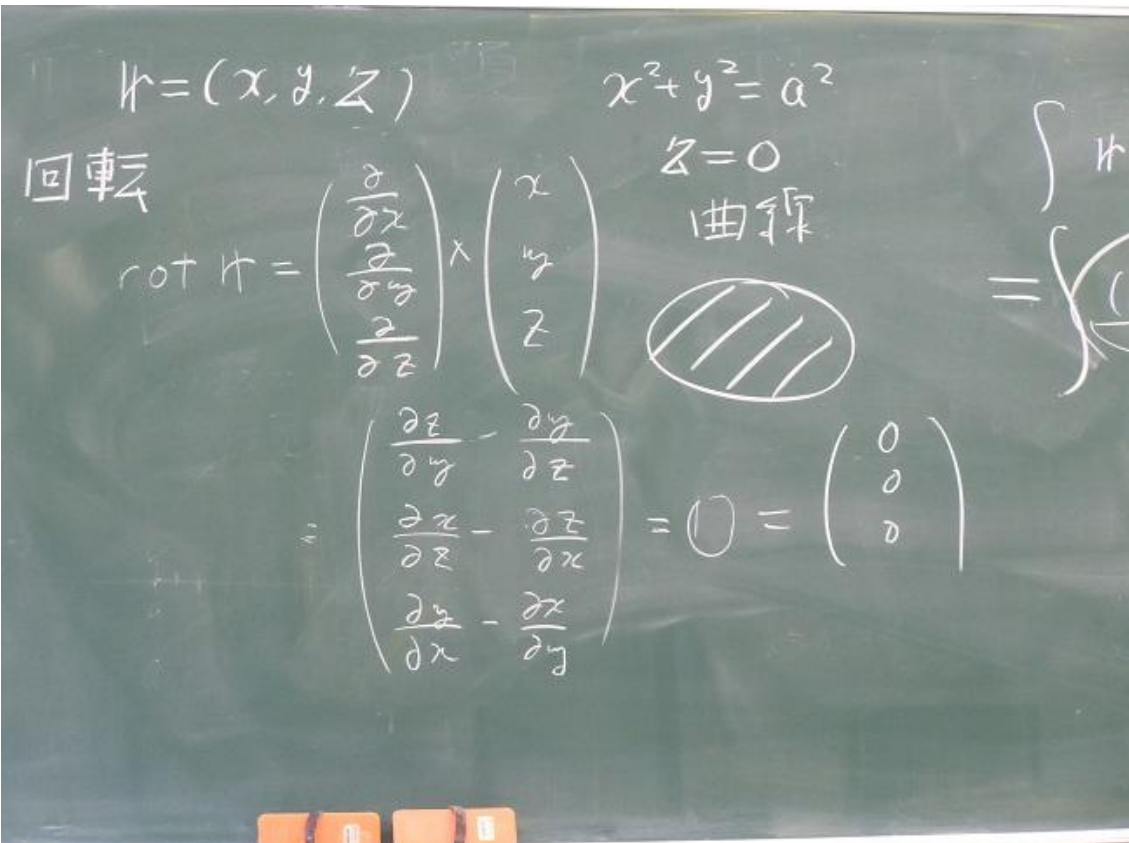 𝕣=(x,y,z)
x²+y²=a²
z=0
曲線
回転
rot 𝕣 = (∂/∂x ∂/∂y ∂/∂z) × (x y z)
= (∂z/∂y - ∂y/∂z
∂x/∂z - ∂z/∂x
∂y/∂x - ∂x/∂y) = 𝟘 = (0 0 0)
∫ 𝕣
= ∫ (